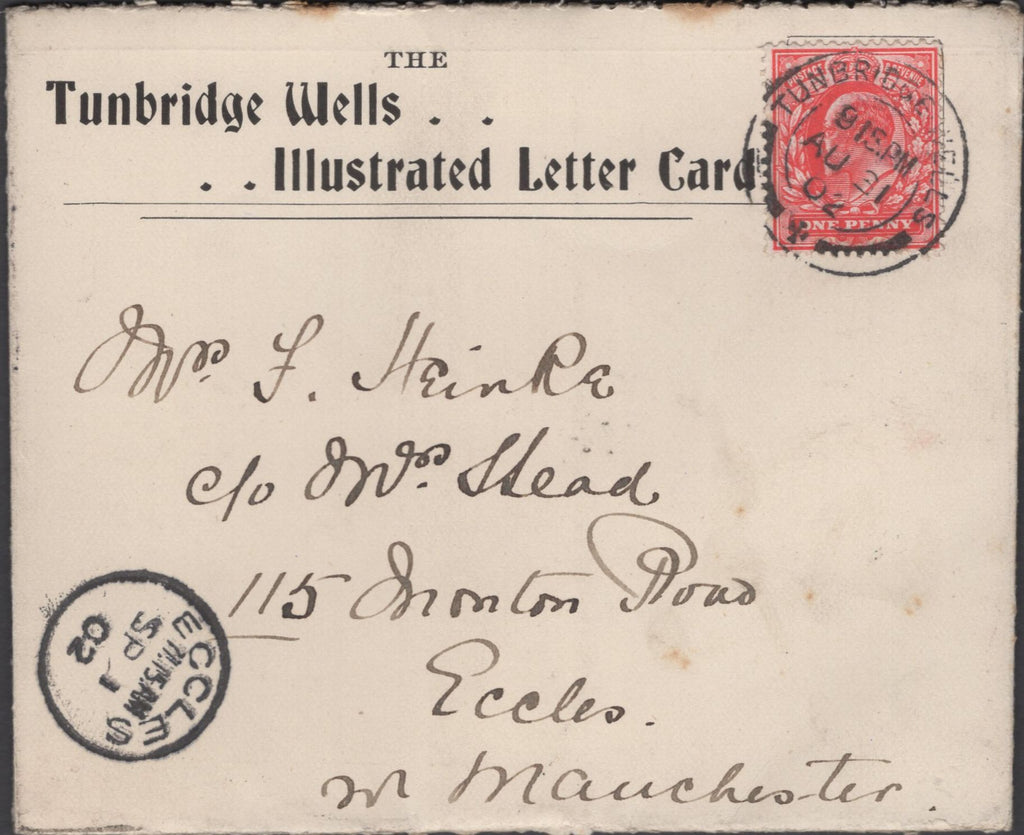 THE
Tunbridge Wells . .
. . Illustrated Letter Card
POSTAGE REVENUE
ONE PENNY
TUNBRIDGE WELLS
915PM
AU 31
02
Mrs. F. Heinke
c/o Mrs. Stead
115 Monton Road
Eccles.
nr Manchester.
ECCLES
11.15AM
SP 1
02